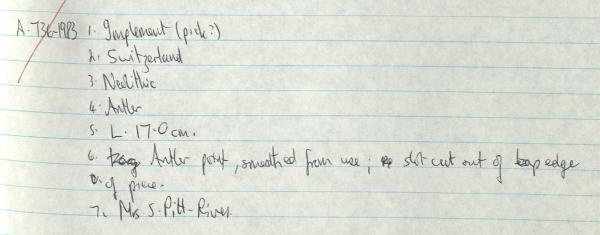 A.736-1983 1. Implement (pick?)
2. Switzerland
3. Neolithic
4. Antler
5. L. 17.0 cm.
6. Antler point, smoothed from use; slot cut out of edge
of piece.
7. Mrs. S. Pitt-Rivers.